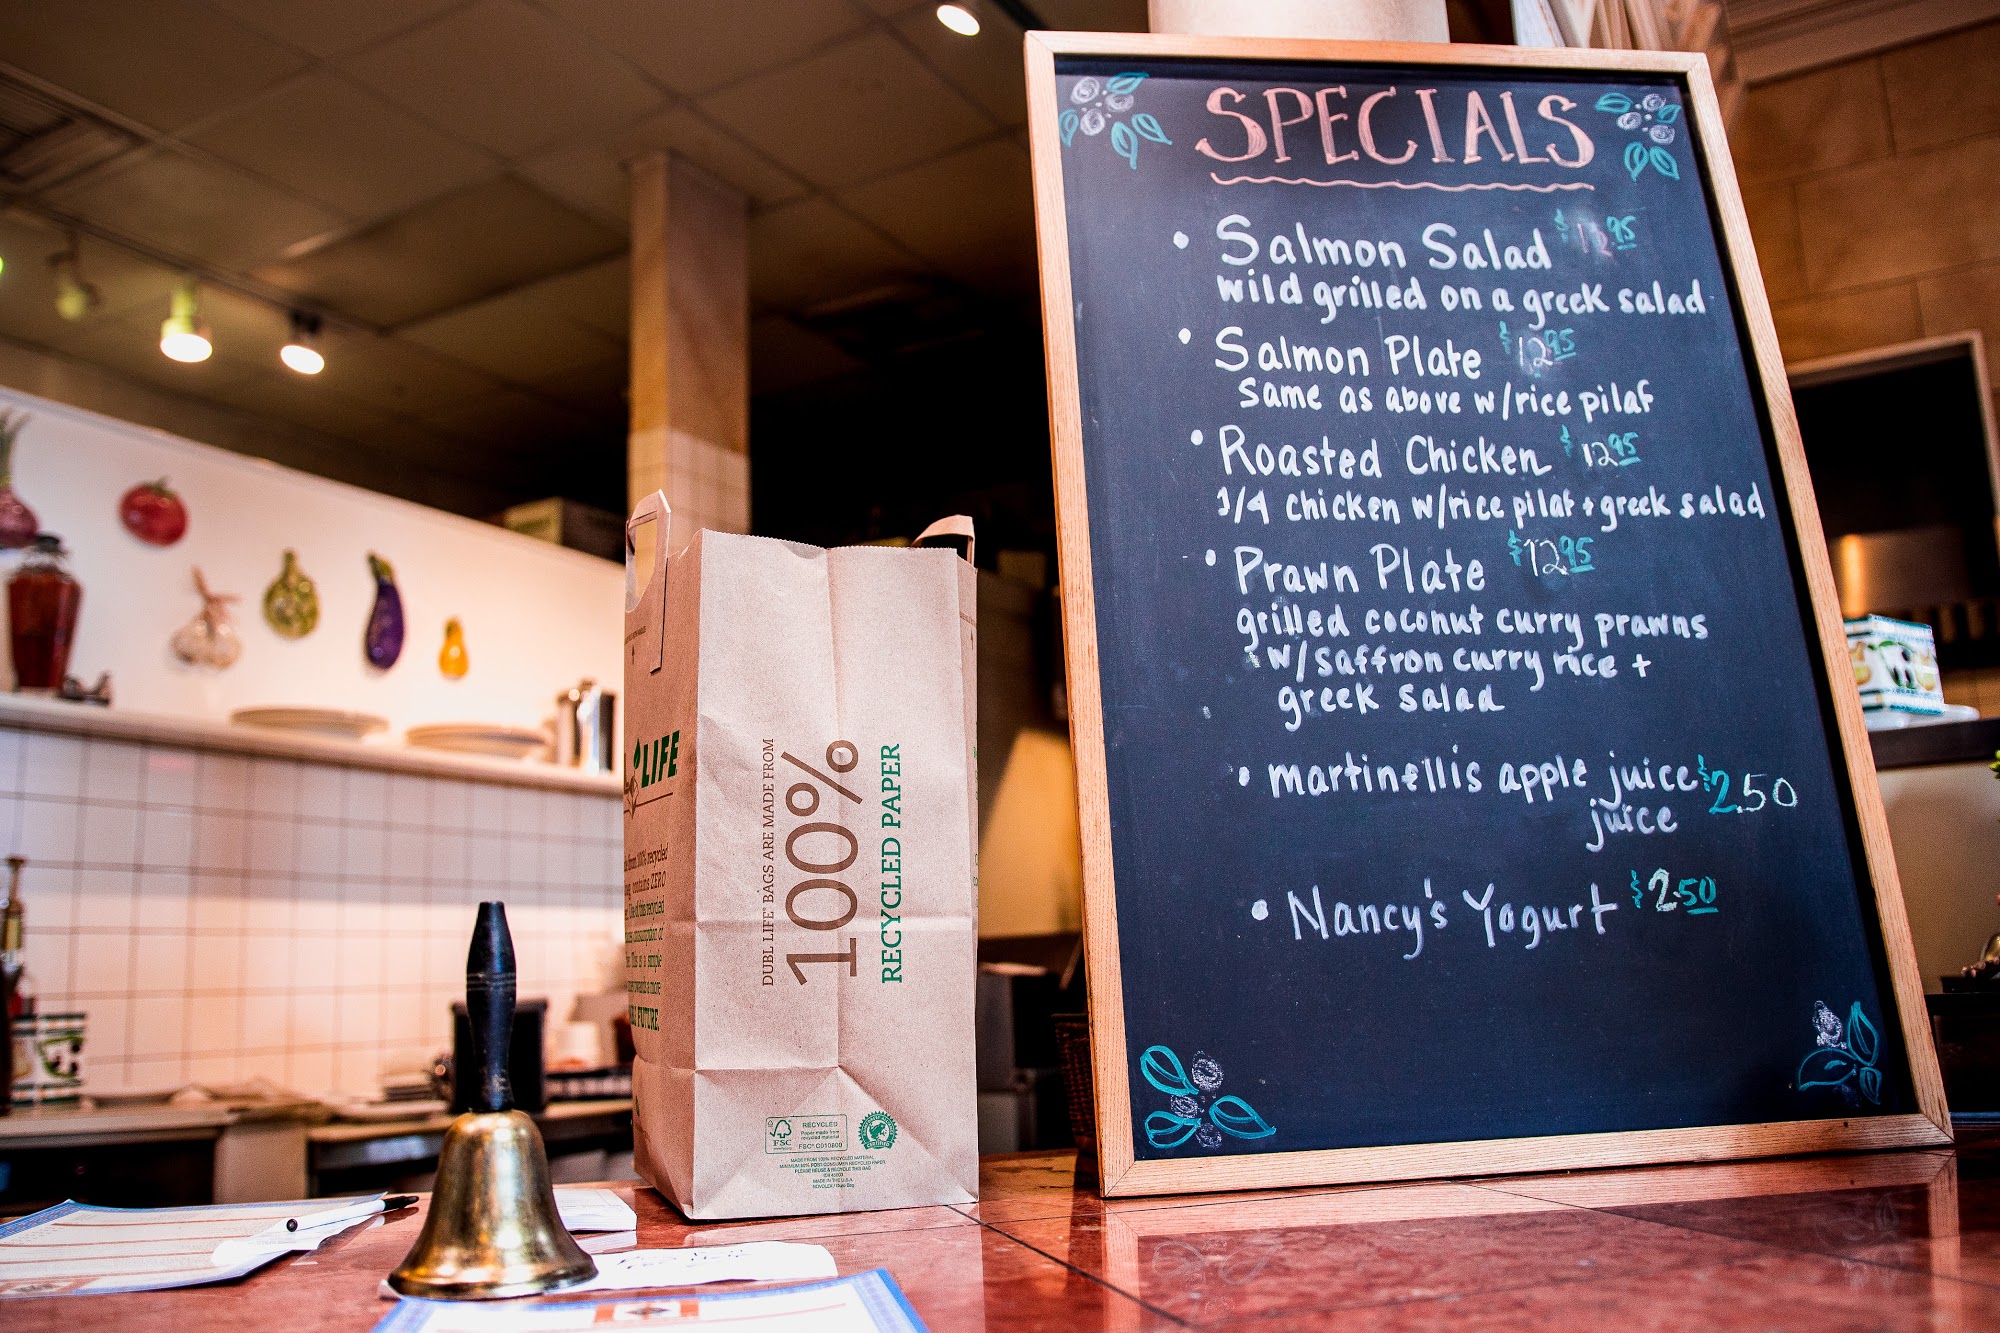 SPECIALS
• Salmon Salad
wild grilled on a greek salad
• Salmon Plate $12.95
same as above w/rice pilaf
• Roasted Chicken $12.95
1/4 chicken w/rice pilaf + greek salad
• Prawn Plate $12.95
grilled coconut curry prawns
w/saffron curry rice +
greek salad
• martinellis apple juice $2.50
juice
• Nancy's Yogurt $2.50
LIFE
DUBL LIFE® BAGS ARE MADE FROM
100%
RECYCLED PAPER
FUTURE.
FSC
RECYCLED
Paper made from
recycled material
FSC® C010800
MADE FROM 100% RECYCLED MATERIAL
PLEASE REUSE & RECYCLE THIS BAG
MADE IN THE U.S.A.